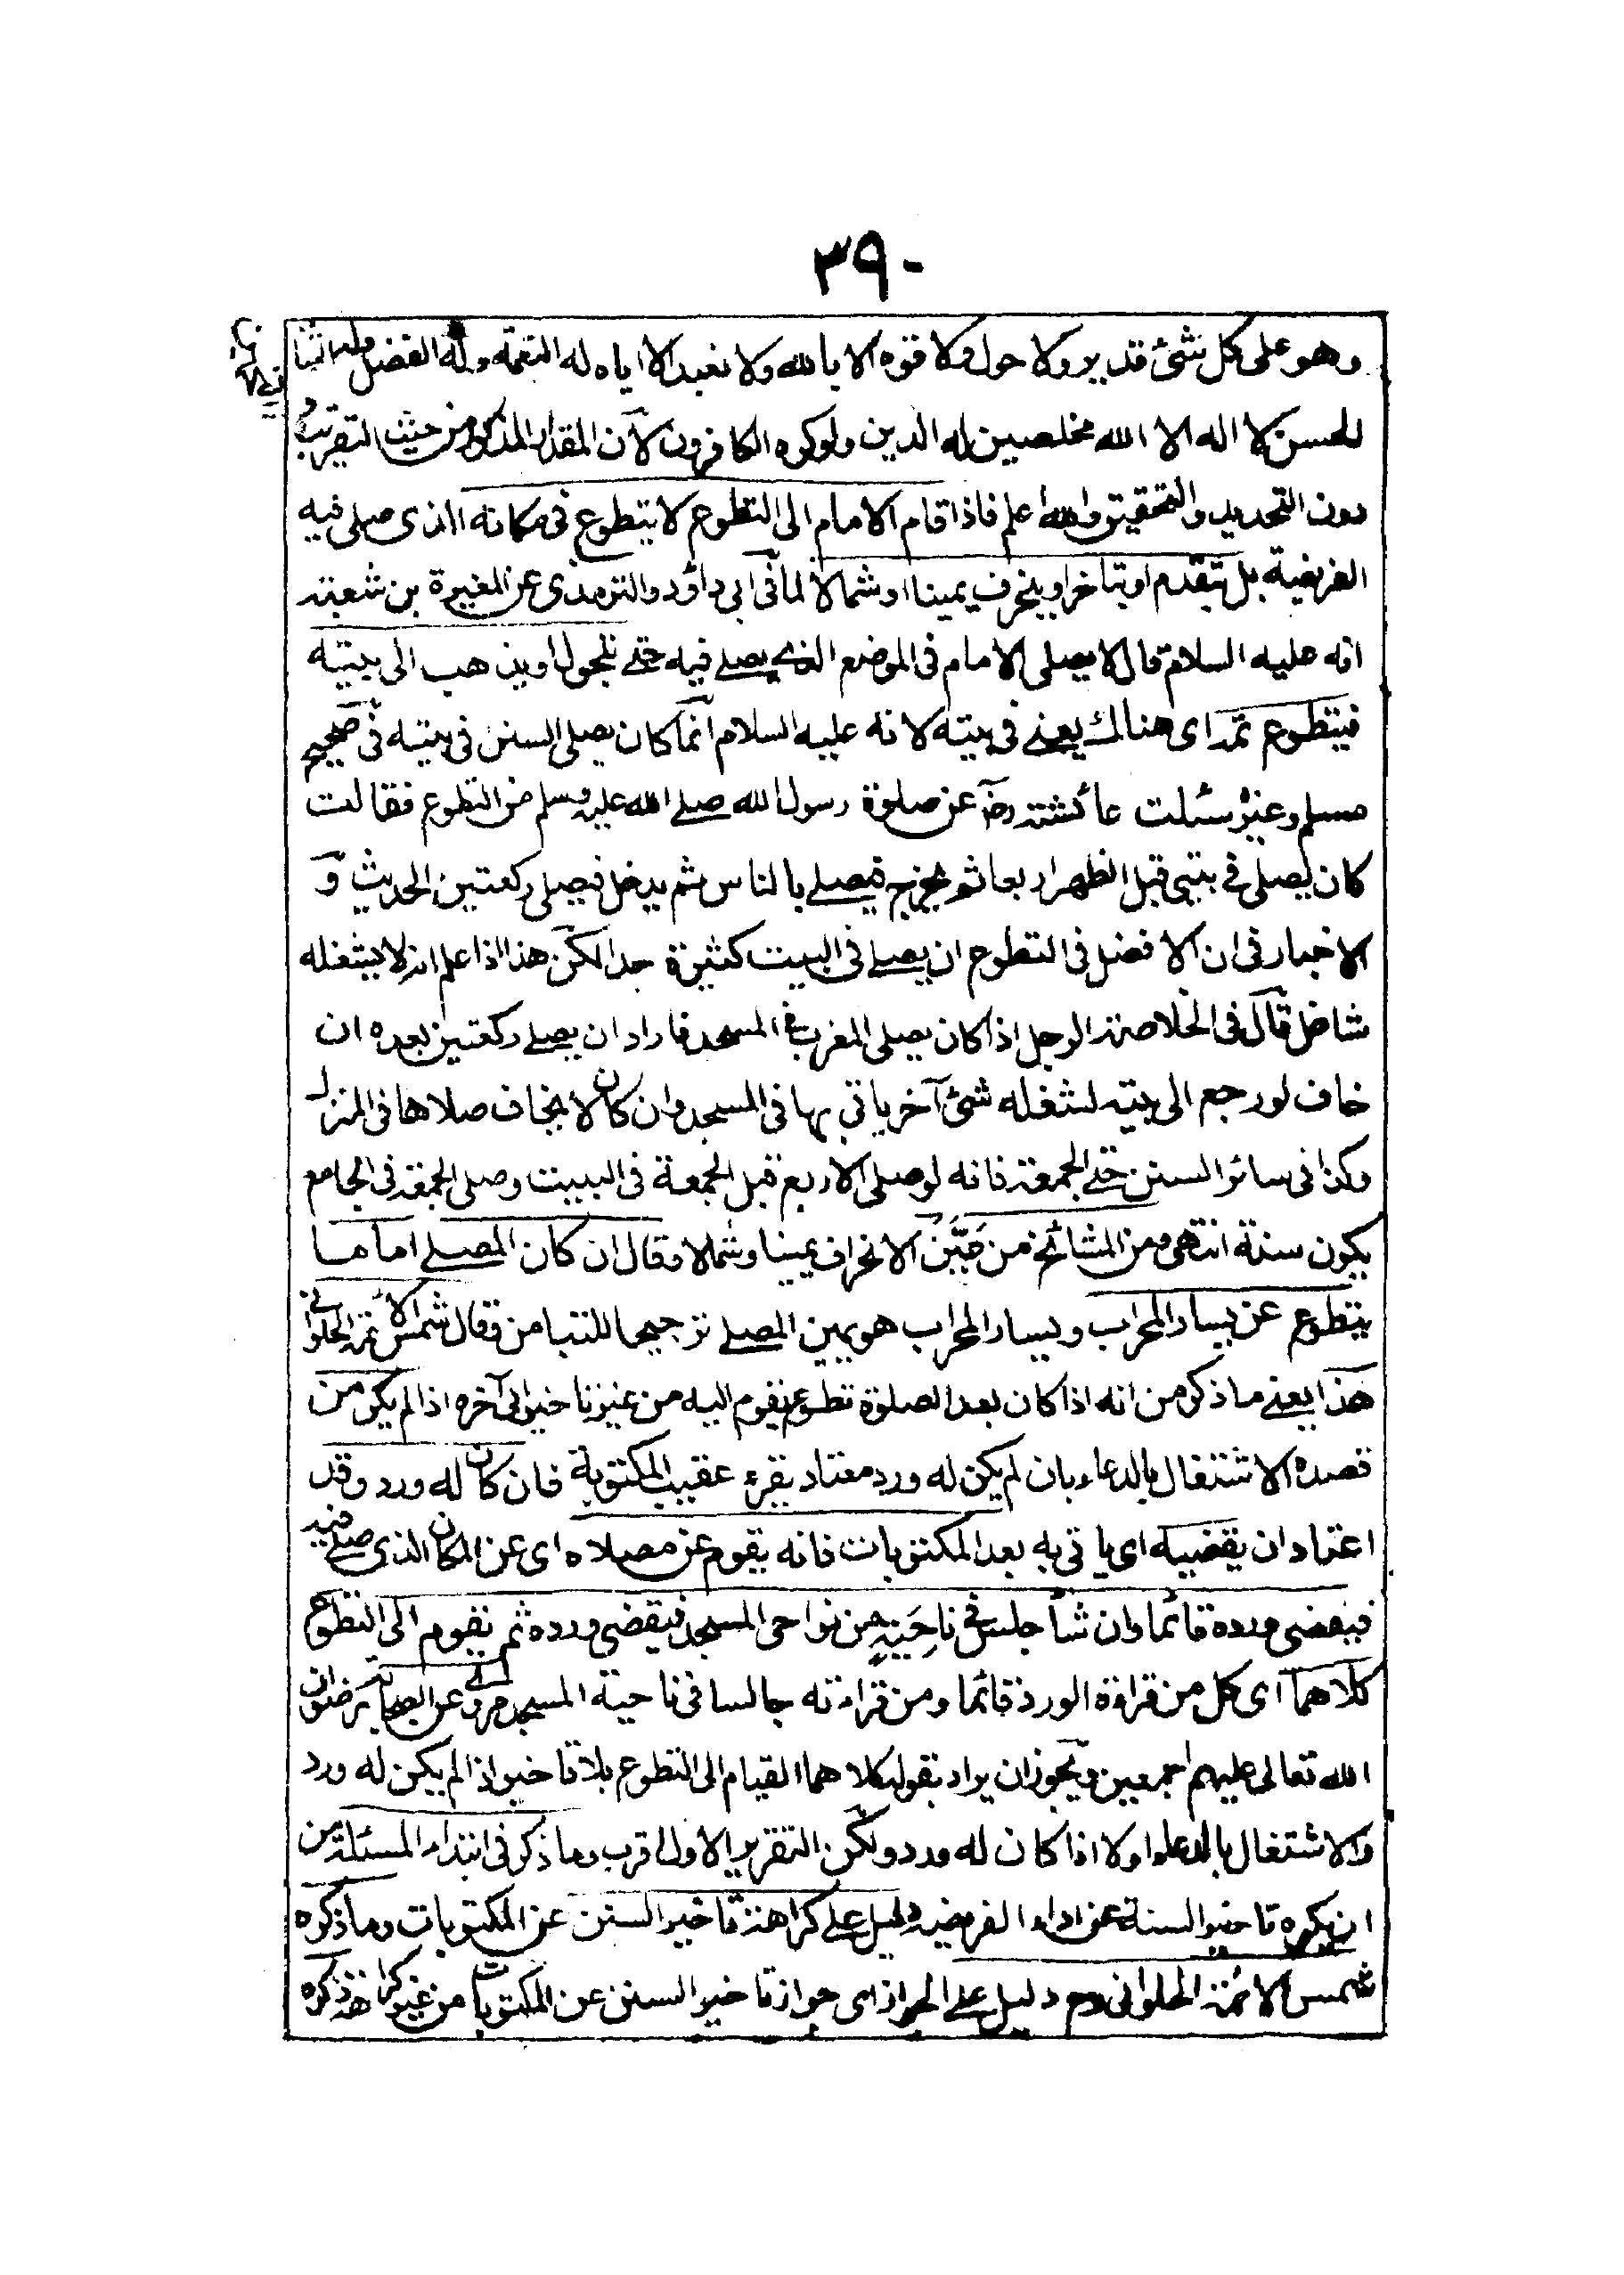 ٣٩٠
وهو على كل شئ قدير ولا حول ولا قوه الا بالله ولا نعبد الا اياه له النعمة وله الفضل وله الثنا
الحسن لا اله الا الله مخلصين له الدين ولو كره الكافرون لان المقدار المذكور من حيث التقريب
دون التحديد والتحقيق والله اعلم فاذا قام الامام الى التطوع لا يتطوع فى مكانه الذى صلى فيه
الفريضة بل يتقدم او يتاخر او ينحرف يمينا او شمالا لما فى ابى داؤد والترمذى عن المغيرة بن شعبة
انه عليه السلام قال لا يصلى الامام فى الموضع الذى يصلے فيه حتے يتحول او يذهب الى بيته
فيتطوع ثمه اى هناك يعنے فى بيته لانه عليه السلام انما كان يصلى السنن فى بيته فى صحيح
مسلم وغيره سئلت عائشة رضـ عن صلوة رسول الله صلے الله عليه وسلم من التطوع فقالت
كان يصلى فى بيتى قبل الظهر اربعا ثم يخرج فيصلے بالناس ثم يدخل فيصلى ركعتين الحديث و
الاخبار فى ان الافضل فى التطوع ان يصلے فى البيت كثيرة جدا لكن هذا اذا علم انه لا يشغله
شاغل قال فى الخلاصة الرجل اذا كان يصلى المغرب فى المسجد فاراد ان يصلے ركعتين بعده ان
خاف لو رجع الى بيته لشغله شئ آخر ياتى بها فى المسجد وان كان لا يخاف صلاها فى المنزل
وكذا فى سائر السنن حتے الجمعة فانه لو صلى الاربع قبل الجمعة فى البيت وصلى الجمعة فى الجامع
يكون سنة انتهى ومن المشائخ من حَبَّنَ الانحراف يمينا وشمالا وقال ان كان المصلے اماما
يتطوع عن يسار المحراب ويسار المحراب هو يمين المصلے ترجيحا للتيامن وقال شمس الائمة الحلوانى
هذا يعنے ما ذكر من انه اذا كان بعد الصلوة تطوع يقوم اليه من غير تاخير الى آخره اذا لم يكن من
قصده الاشتغال بالدعاء بان لم يكن له ورد معتاد يقرء عقيب المكتوبة فان كان له ورد وقد
اعتاد ان يقضيه اى ياتى به بعد المكتوبات فانه يقوم عن مصلاه اى عن المكان الذى صلے فيه
فيقضى ورده قائما وان شأ جلس فى ناحِيَةٍ من نواحى المسجد فيقضى ورده ثم يقوم الى التطوع
كلاهما اى كل من قراءة الورد قائما ومن قراءته جالسا فى ناحية المسجد مروى عن الصحابة رضوان
الله تعالى عليهم اجمعين ويجوز ان يراد بقوله كلاهما القيام الى التطوع بلا تاخير اذا لم يكن له ورد
والاشتغال بالدعاء اولا اذا كان له ورد ولكن التقرير الاول اقرب وما ذكر فى ابتداء المسئلة من
ان يكره تاخير السنة عن اداء الفريضة دليل علے كراهة تاخير السنن عن المكتوبات وما ذكره
شمس الائمة الحلوانى رحـ دليل علے الجواز اى جواز تاخير السنن عن المكتوبات من غير كراهة ذكره